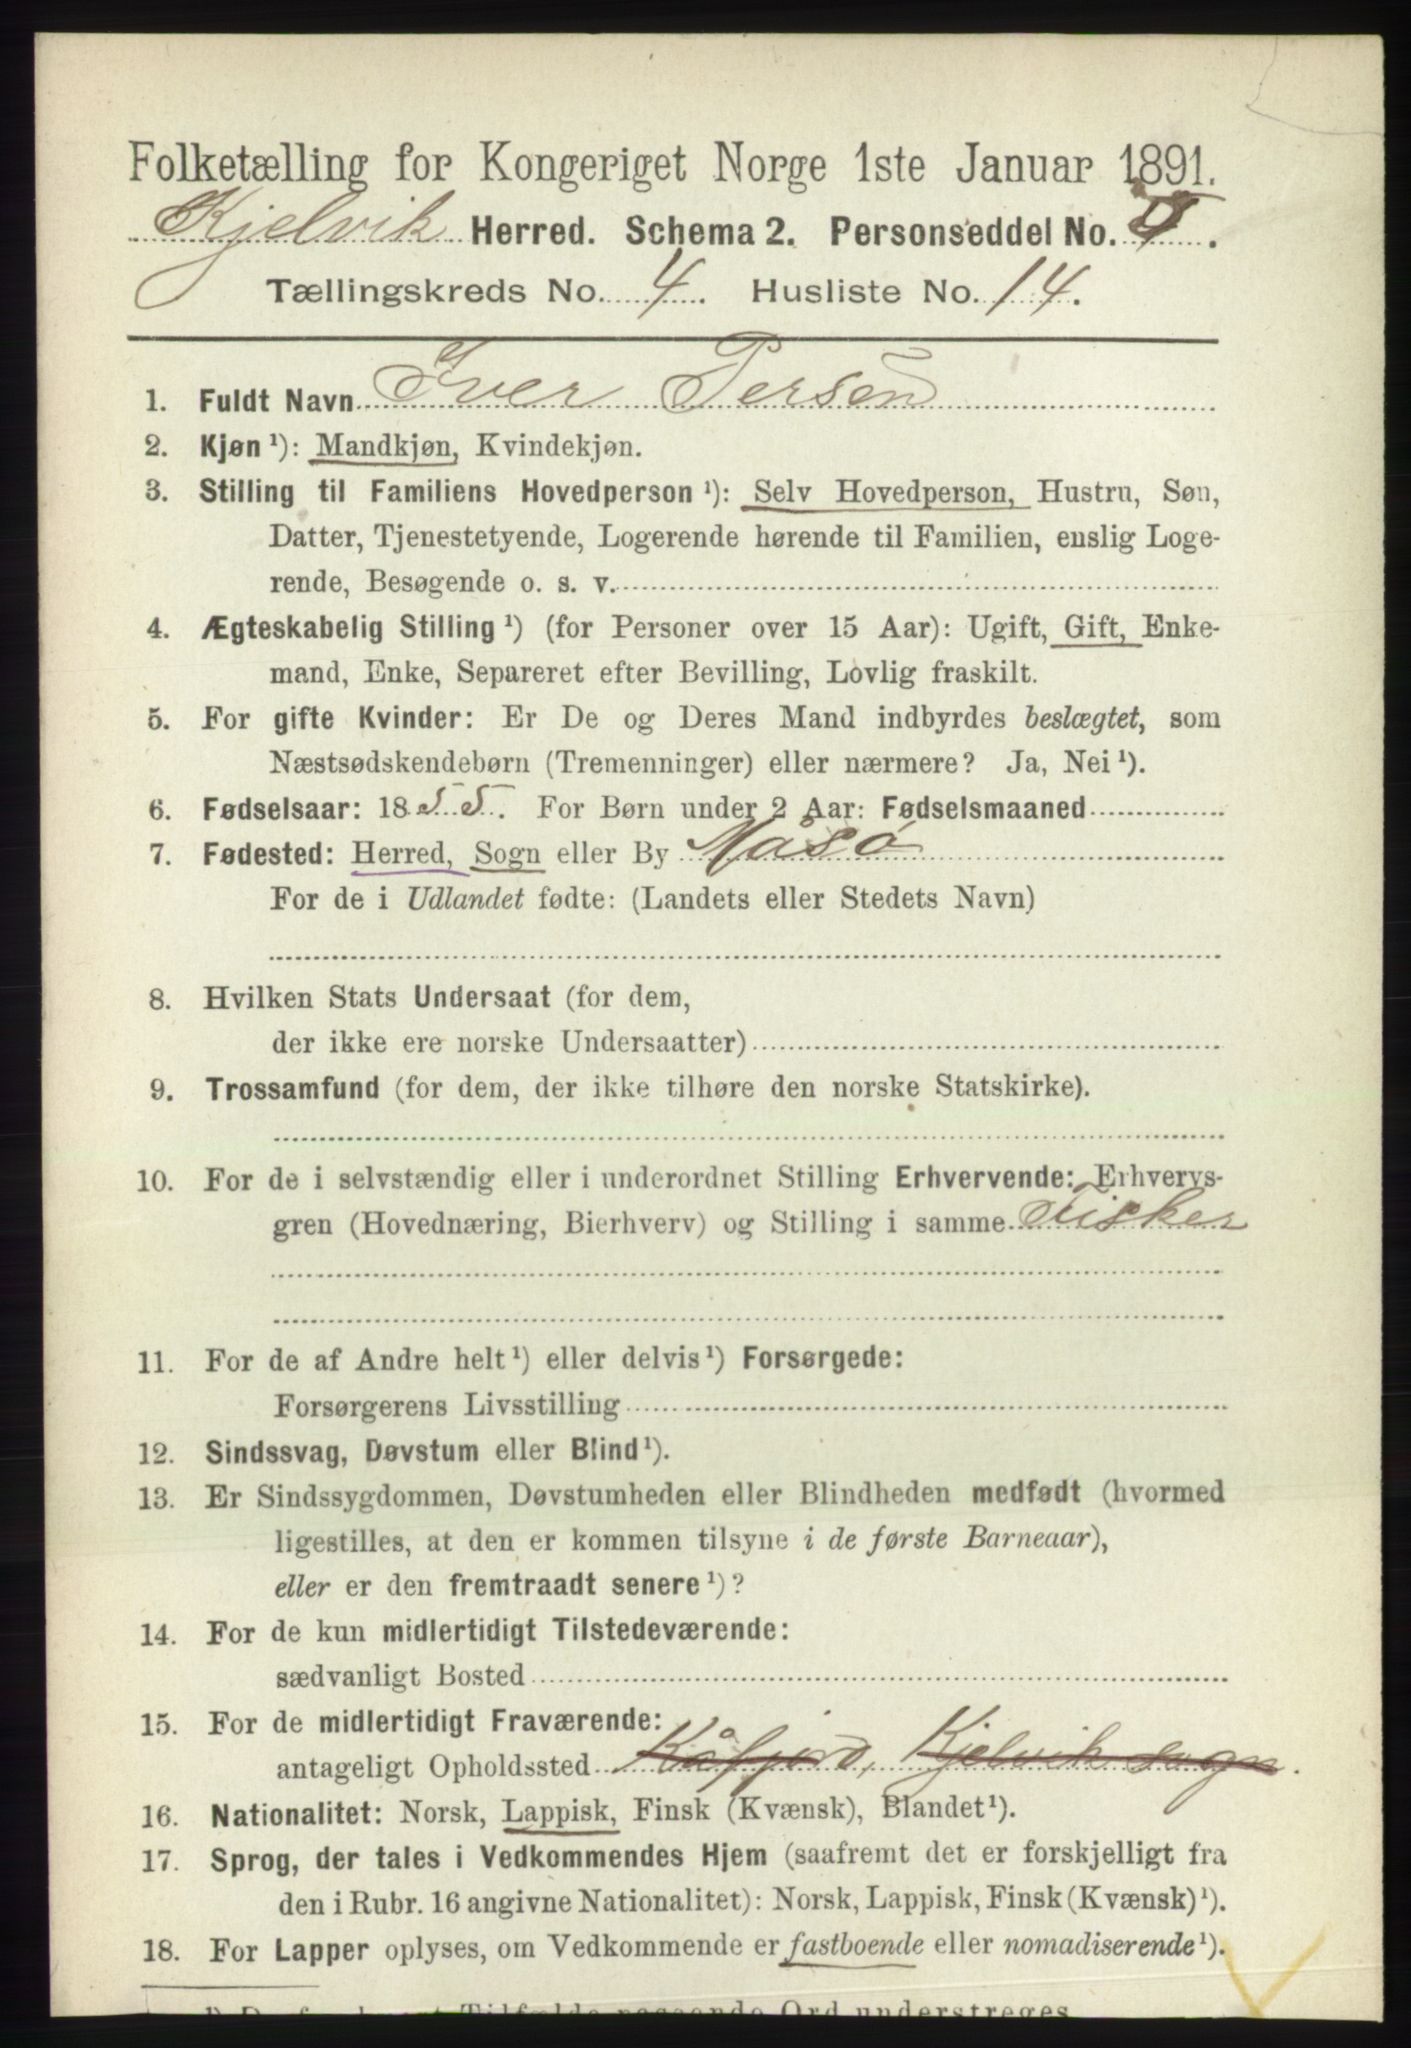 Folketælling for Kongeriget Norge 1ste Januar 1891.
Kjelvik Herred. Schema 2. Personseddel No. .
Tællingskreds No. 4. Husliste No. 14.
1. Fuldt Navn Iver Persen
2. Kjøn ¹): Mandkjøn, Kvindekjøn.
3. Stilling til Familiens Hovedperson ¹): Selv Hovedperson, Hustru, Søn,
Datter, Tjenestetyende, Logerende hørende til Familien, enslig Loge-
rende, Besøgende o. s. v.
4. Ægteskabelig Stilling ¹) (for Personer over 15 Aar): Ugift, Gift, Enke-
mand, Enke, Separeret efter Bevilling, Lovlig fraskilt.
5. For gifte Kvinder: Er De og Deres Mand indbyrdes beslægtet, som
Næstsødskendebørn (Tremenninger) eller nærmere? Ja, Nei ¹).
6. Fødselsaar: 1855. For Børn under 2 Aar: Fødselsmaaned
7. Fødested: Herred, Sogn eller By Måsø
For de i Udlandet fødte: (Landets eller Stedets Navn)
8. Hvilken Stats Undersaat (for dem,
der ikke ere norske Undersaatter)
9. Trossamfund (for dem, der ikke tilhøre den norske Statskirke).
10. For de i selvstændig eller i underordnet Stilling Erhvervende: Erhvervs-
gren (Hovednæring, Bierhverv) og Stilling i samme Fisker
11. For de af Andre helt ¹) eller delvis ¹) Forsørgede:
Forsørgerens Livsstilling
12. Sindssvag, Døvstum eller Blind ¹).
13. Er Sindssygdommen, Døvstumheden eller Blindheden medfødt (hvormed
ligestilles, at den er kommen tilsyne i de første Barneaar),
eller er den fremtraadt senere ¹)?
14. For de kun midlertidigt Tilstedeværende:
sædvanligt Bosted
15. For de midlertidigt Fraværende:
antageligt Opholdssted Kåfjord, Kjelvik sogn.
16. Nationalitet: Norsk, Lappisk, Finsk (Kvænsk), Blandet ¹).
17. Sprog, der tales i Vedkommendes Hjem (saafremt det er forskjelligt fra
den i Rubr. 16 angivne Nationalitet): Norsk, Lappisk, Finsk (Kvænsk) ¹).
18. For Lapper oplyses, om Vedkommende er fastboende eller nomadiserende ¹).
Tilfælde passende Ord understreges